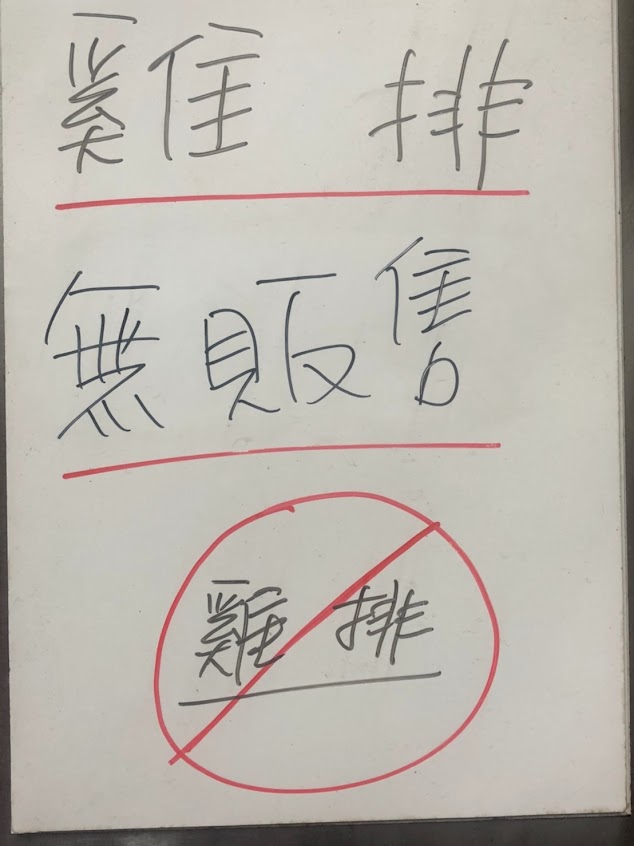 雞排
無販售
雞排